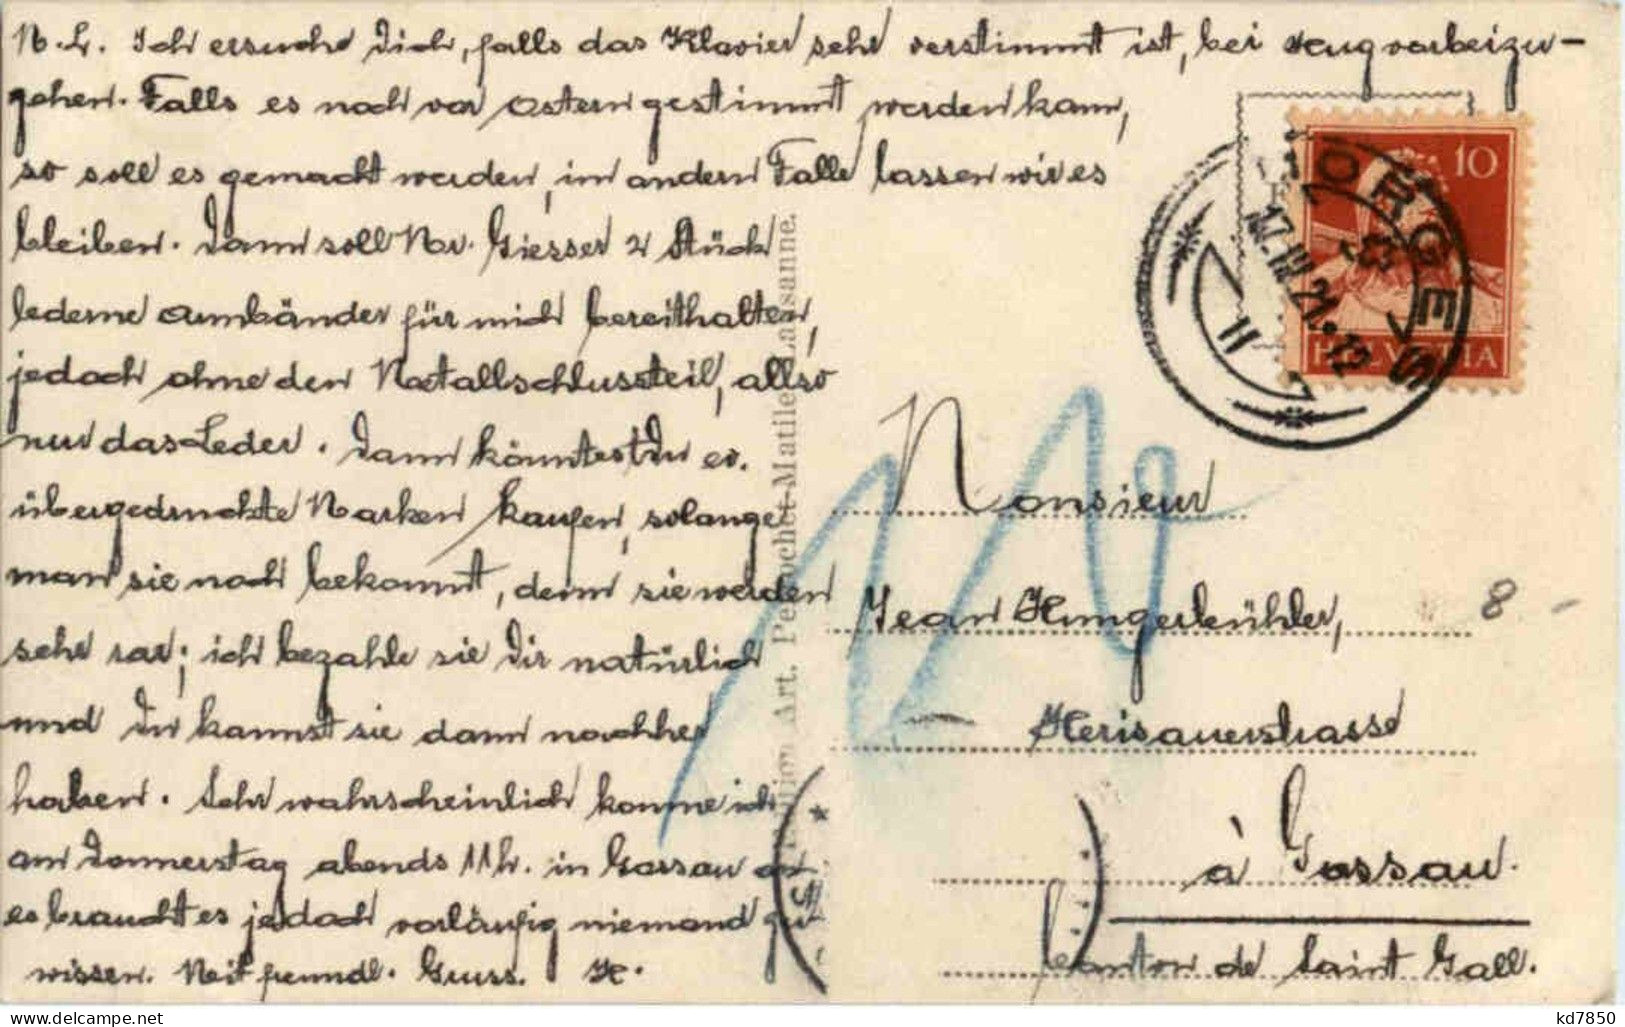 M. L. Ich ersuche Dich, falls das Klavier sehr verstimmt ist, bei Hug vorbeizu-
gehen. Falls es noch vor Ostern gestimmt werden kann,
so soll es gemacht werden, im andern Falle lassen wir es
bleiben. Dann soll Mr. Giesser 2 Stück
lederne Armbänder für mich bereithalten,
jedoch ohne den Metallschlussteil, allso
nur das Leder. Dann könntest Du ev.
übergedruckte Marken kaufen, solange
man sie noch bekommt, denn sie werden
sehr rar; ich bezahle sie Dir natürlich
und Du kannst sie dann nachher
haben. Sehr wahrscheinlich komme ich
am Donnerstag abends 11 h. in Gossau an
es braucht es jedoch vorläufig niemand zu
wissen. Mit freundl. Gruss. H.
Edition Art. Perrochet-Matile, Lausanne.
MORGES
17.III.21.-12
10
HELVETIA
Monsieur
Jean Hungerbühler,
Herisauerstrasse
à Gossau.
Canton de Saint Gall.
8 -
kd7850